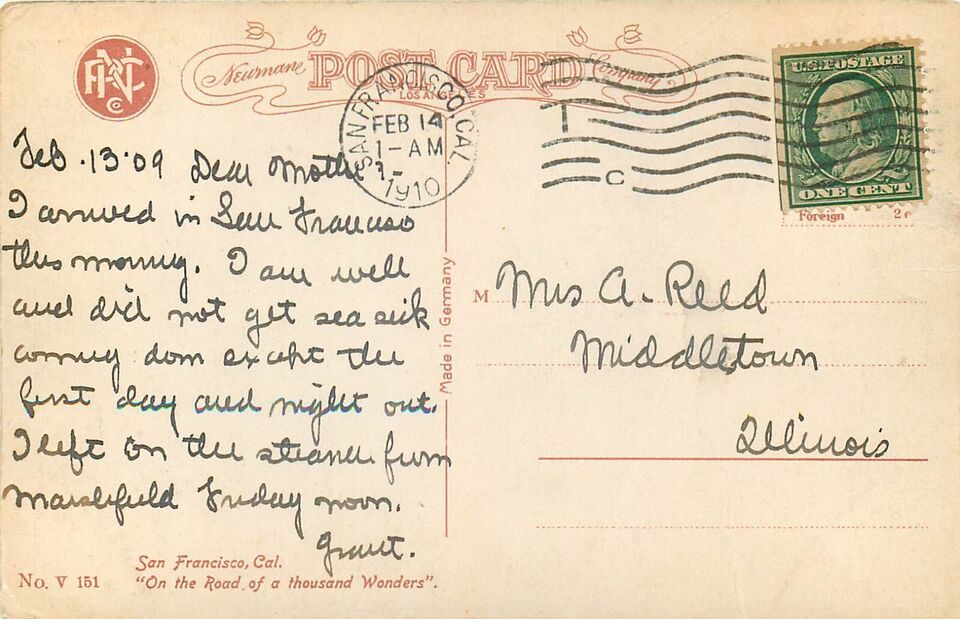 Neumane POST CARD Company
LOS ANGELES
PNC
Co
SAN FRANCISCO, CAL.
FEB 14
1-AM
1910
T
C
U.S. POSTAGE
ONE CENT
Foreign 2c
Feb. 13 '09 Dear Mother
I arrived in San Francisco
this morning. I am well
and did not get sea sick
coming down except the
first day and night out.
I left on the steamer from
Marshfield Friday noon.
Grant.
Made in Germany
M Mrs A. Reed
Middletown
Illinois
San Francisco, Cal.
No. V 151 "On the Road of a thousand Wonders".